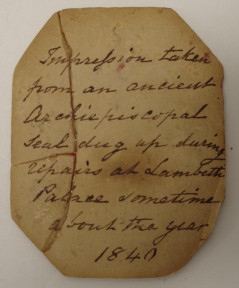 Impression taken
from an ancient
Archiepiscopal
Seal dug up during
repairs at Lambeth
Palace sometime
about the year
1840